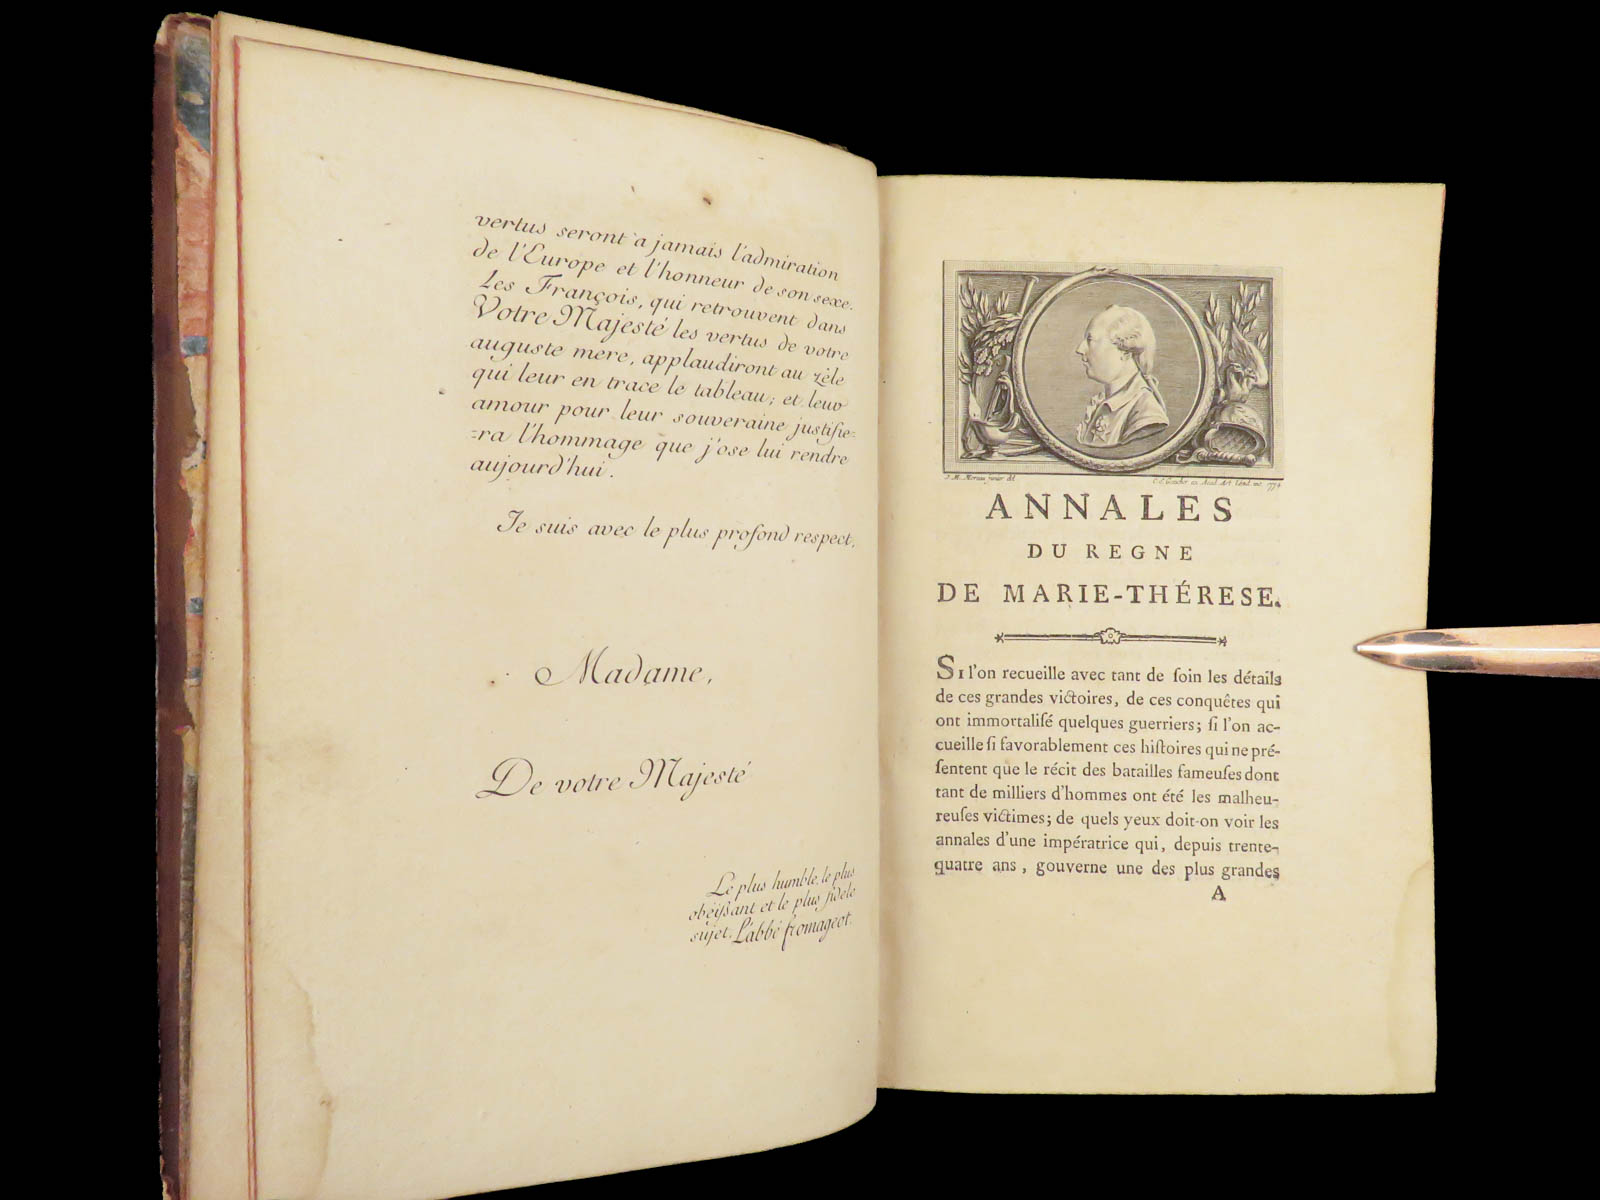 vertus seront a jamais l'admiration
de l'Europe et l'honneur de son sexe.
Les François, qui retrouvent dans
Votre Majesté les vertus de votre
auguste mere, applaudiront au zèle
qui leur en trace le tableau; et leur
amour pour leur souveraine justifie-
-ra l'hommage que j'ose lui rendre
aujourd'hui.
Je suis avec le plus profond respect,
Madame,
De votre Majesté
Le plus humble, le plus
obéißant et le plus fidele
sujet. L'abbé fromageot.
J. M. Moreau junior del.
ANNALES
DU REGNE
DE MARIE-THÉRESE.
SI l'on recueille avec tant de ſoin les détails
de ces grandes victoires, de ces conquêtes qui
ont immortaliſé quelques guerriers; ſi l'on ac-
cueille ſi favorablement ces hiſtoires qui ne pré-
ſentent que le récit des batailles fameuſes dont
tant de milliers d'hommes ont été les malheu-
reuſes victimes; de quels yeux doit-on voir les
annales d'une impératrice qui, depuis trente-
quatre ans, gouverne une des plus grandes
A